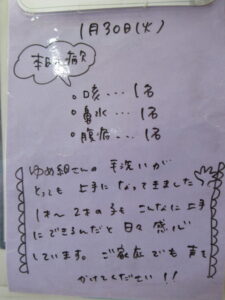 1月30日(火)
本日の病欠
。咳... 1名
。鼻水... 1名
。腹痛... 1名
ゆめ組さんの 手洗いが
とっても 上手に なってきました♪
1才〜2才の子も こんなに上手
にできるんだと 日々 感心
しています。ご家庭でも 声を
かけてください!!